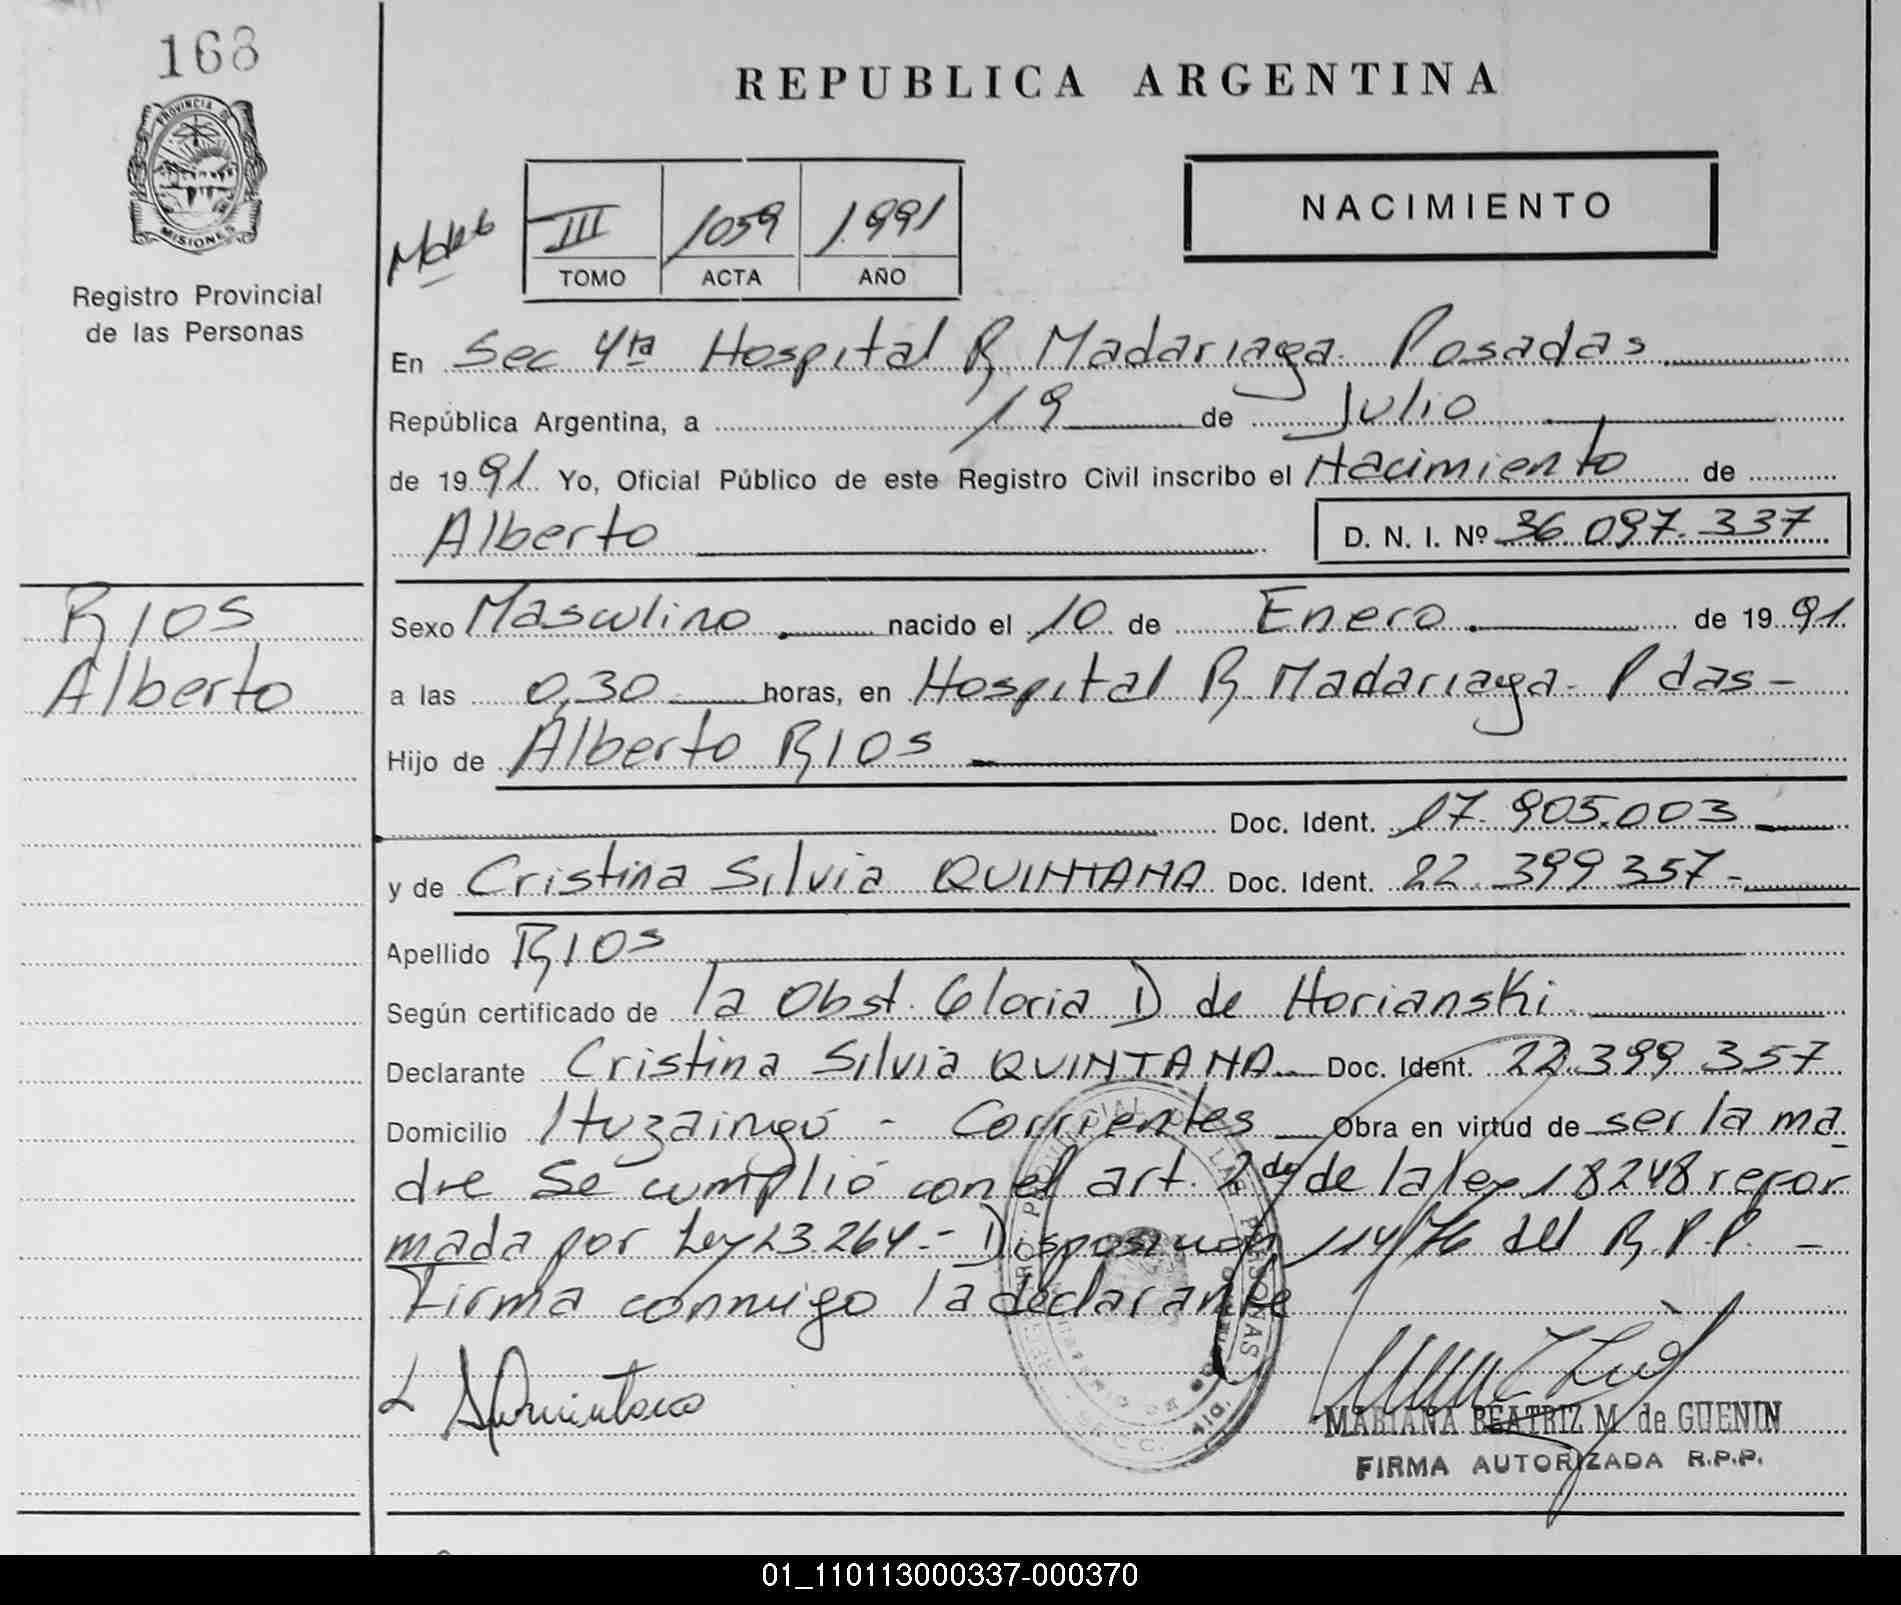 168
PROVINCIA DE
MISIONES
Registro Provincial
de las Personas
REPUBLICA ARGENTINA
NACIMIENTO
III 1059 1.991
TOMO ACTA AÑO
En Sec 4ta Hospital R Madariaga Posadas
República Argentina, a 19 de Julio
de 1991. Yo, Oficial Público de este Registro Civil inscribo el Nacimiento de
Alberto D. N. I. Nº 36.097.337
RIOS
Alberto
Sexo Masculino nacido el 10 de Enero de 1991.
a las 0,30 horas, en Hospital R. Madariaga - Pdas -
Hijo de Alberto RIOS
Doc. Ident. 17.905.003
y de Cristina Silvia QUINTANA Doc. Ident. 22.399.357-
Apellido RIOS
Según certificado de la Obst. Gloria D de Horianski
Declarante Cristina Silvia QUINTANA Doc. Ident. 22.399.357
Domicilio Ituzaingó - Corrientes Obra en virtud de ser la ma
dre Se cumplió con el art. 2do de la ley 18248 refor
mada por Ley 23.264.- Disposición 114/76 del R.P.P. -
Firma conmigo la declarante
SQuintana
MARIANA BEATRIZ M. de GUENIN
FIRMA AUTORIZADA R.P.P.
01_110113000337-000370